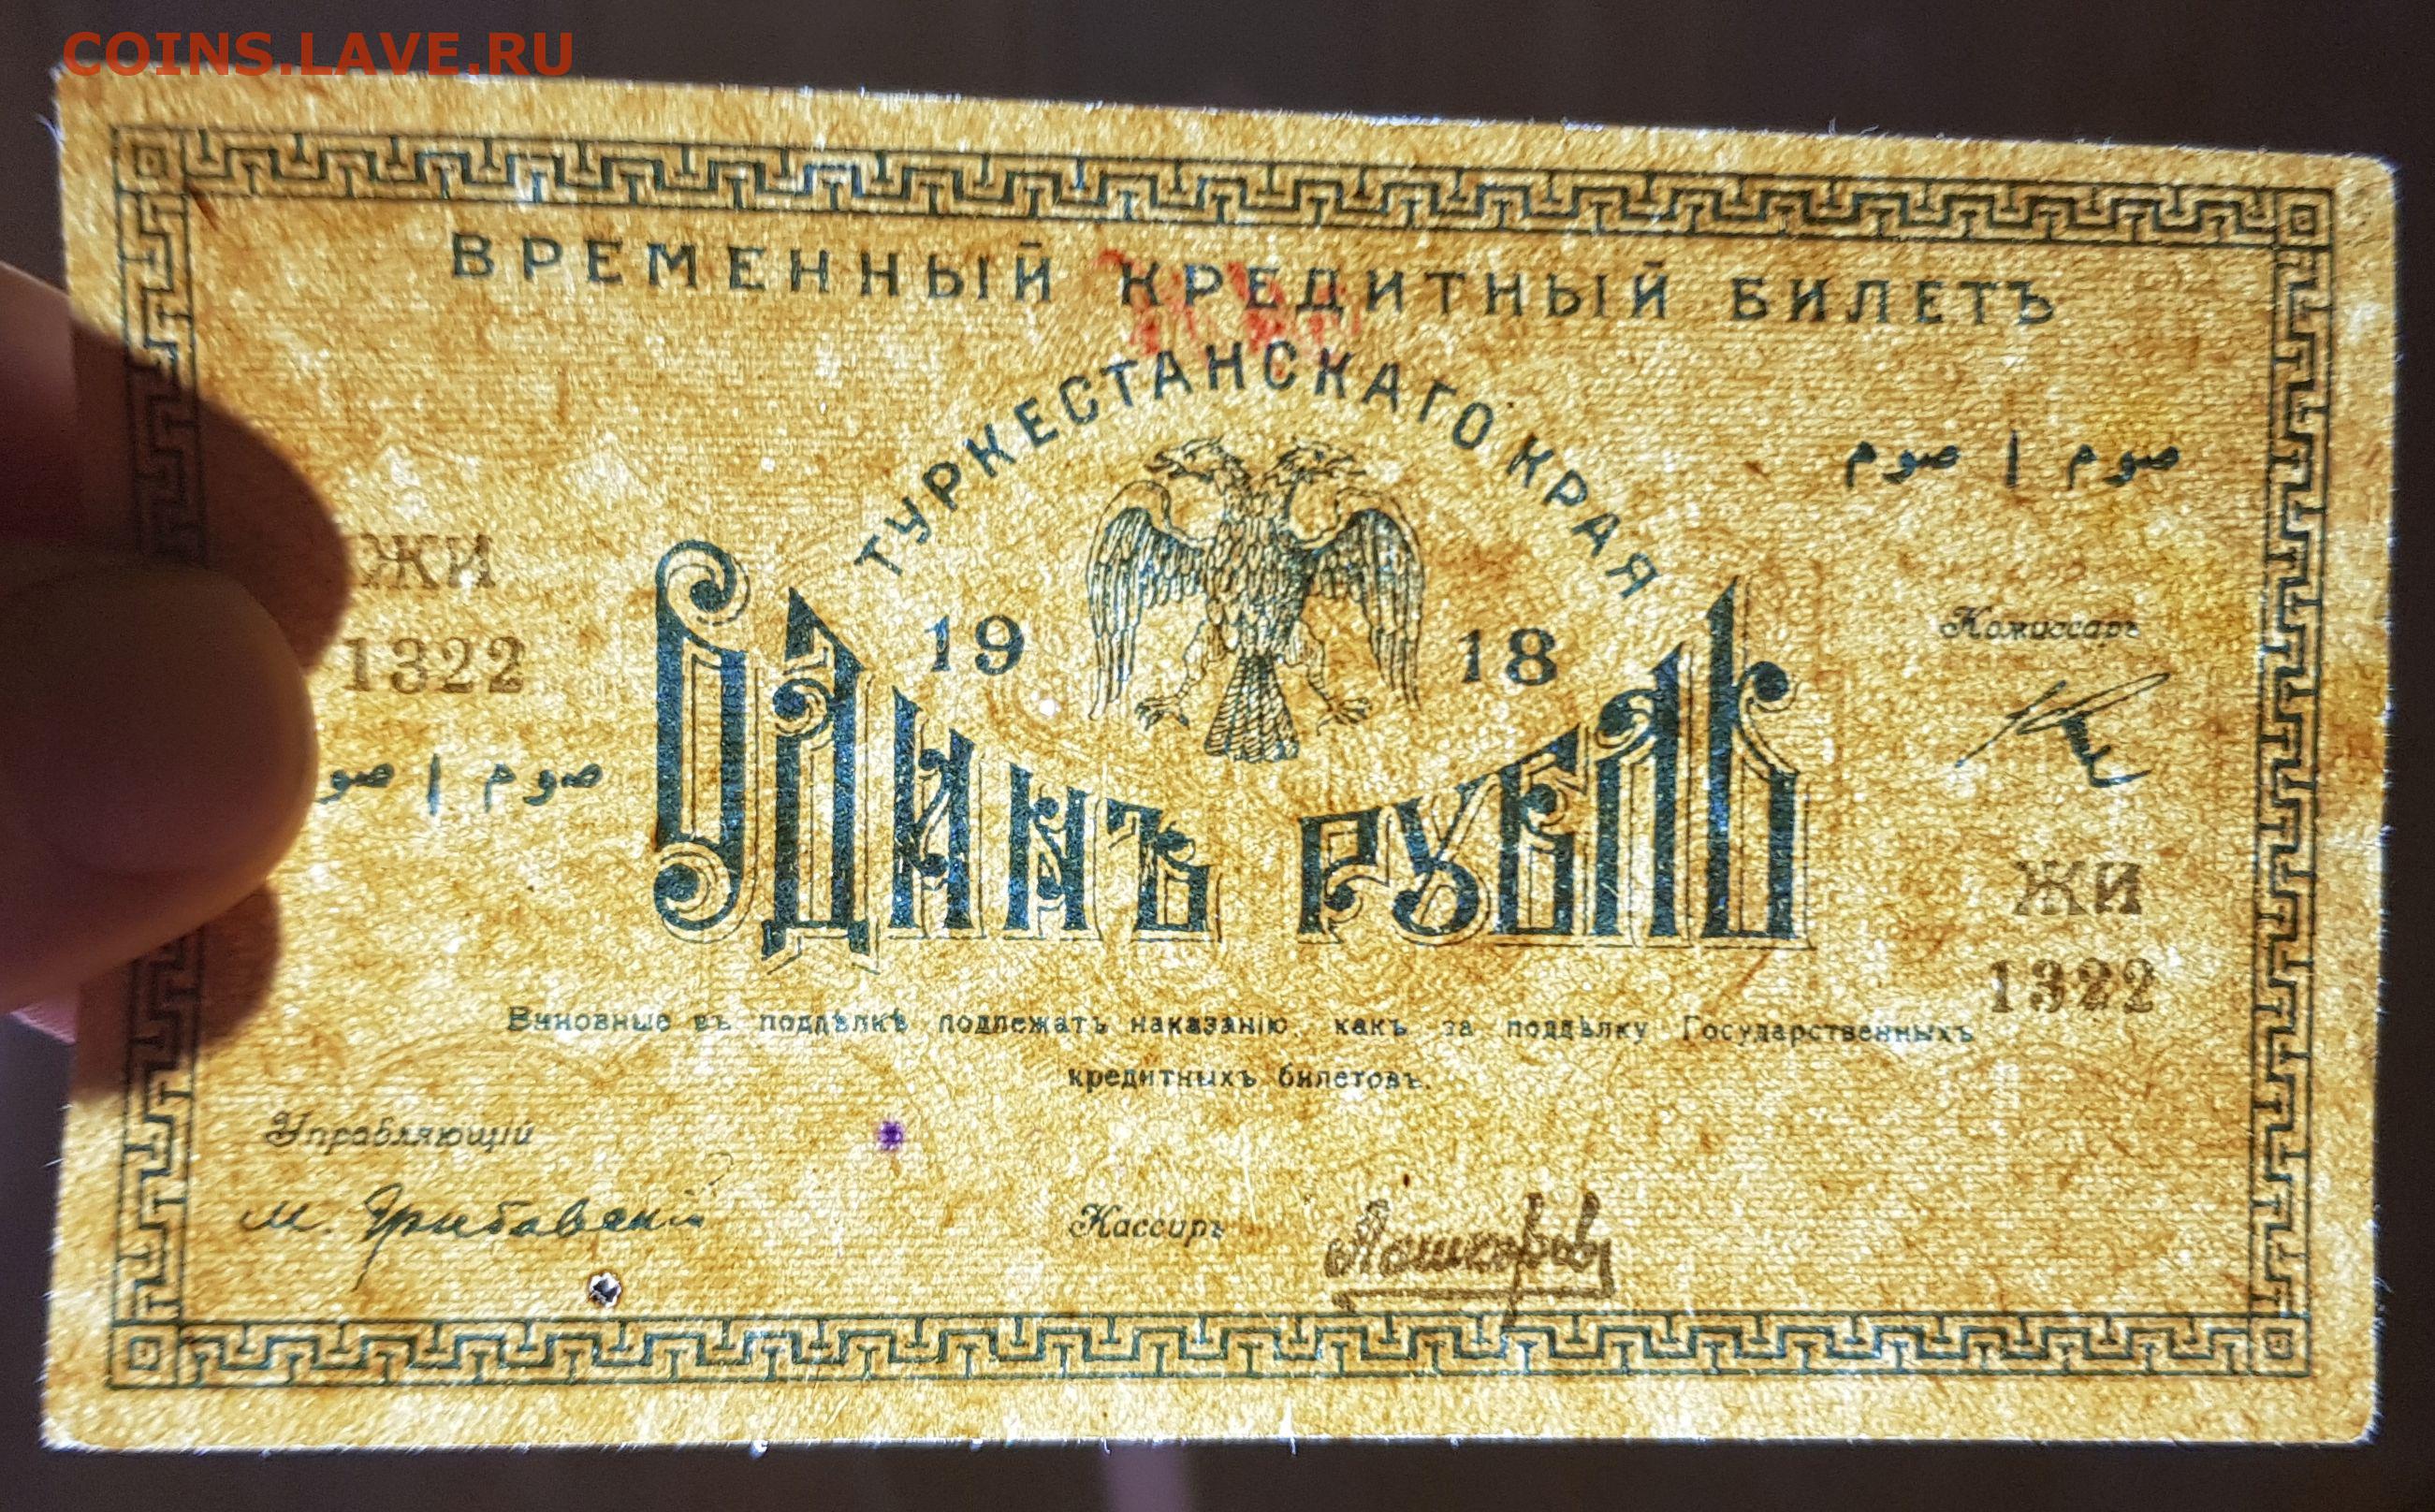 COINS.LAVE.RU
ВРЕМЕННЫЙ КРЕДИТНЫЙ БИЛЕТЪ
ТУРКЕСТАНСКАГО КРАЯ
صوم ١ صوم
ЖИ
1322
1918
Комиссаръ
صوم ١ صو
ОДИНЪ РУБЛЬ
ЖИ
1322
Виновные въ поддѣлкѣ подлежатъ наказанію, какъ за поддѣлку Государственныхъ
кредитныхъ билетовъ.
Управляющій
М. Грибавский
Кассиръ